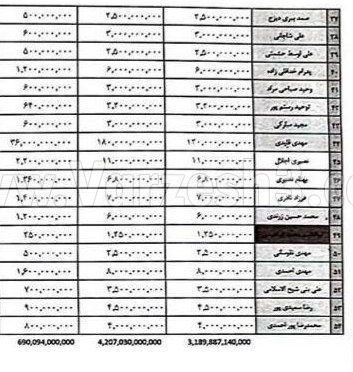 ۳۷ صمد پسری دیزج ۲,۵۰۰,۰۰۰,۰۰۰ ۲,۵۰۰,۰۰۰,۰۰۰ ۵۰۰,۰۰۰,۰۰۰
۳۸ علی ۳,۰۰۰,۰۰۰,۰۰۰ ۳,۰۰۰,۰۰۰,۰۰۰ ۶۰۰,۰۰۰,۰۰۰
۳۹ علی اوسط حشمتی ۲,۵۰۰,۰۰۰,۰۰۰ ۲,۵۰۰,۰۰۰,۰۰۰ ۵۰۰,۰۰۰,۰۰۰
۴۰ پدرام صداقتی زاده ۶,۰۰۰,۰۰۰,۰۰۰ ۶,۰۰۰,۰۰۰,۰۰۰ ۱,۲۰۰,۰۰۰,۰۰۰
۴۱ وحید صباحی ۳,۰۰۰,۰۰۰,۰۰۰ ۳,۰۰۰,۰۰۰,۰۰۰ ۶۰۰,۰۰۰,۰۰۰
۴۲ توحید رستم پور ۳,۲۰۰,۰۰۰,۰۰۰ ۳,۲۰۰,۰۰۰,۰۰۰ ۶۴۰,۰۰۰,۰۰۰
۴۳ مجید ۳,۰۰۰,۰۰۰,۰۰۰ ۳,۰۰۰,۰۰۰,۰۰۰ ۶۰۰,۰۰۰,۰۰۰
۴۴ مهدی قایدی ۱۸۰,۰۰۰,۰۰۰,۰۰۰ ۳۶,۰۰۰,۰۰۰,۰۰۰
۴۵ نصیری ۱۱,۰۰۰,۰۰۰,۰۰۰ ۱۱,۰۰۰,۰۰۰,۰۰۰ ۲,۲۰۰,۰۰۰,۰۰۰
۴۶ بهنام نصیری ۶,۸۰۰,۰۰۰,۰۰۰ ۶,۸۰۰,۰۰۰,۰۰۰ ۱,۳۶۰,۰۰۰,۰۰۰
۴۷ فرزاد نادری ۷,۰۰۰,۰۰۰,۰۰۰ ۷,۰۰۰,۰۰۰,۰۰۰ ۱,۴۰۰,۰۰۰,۰۰۰
۴۸ محمد حسین زرندی ۶,۰۰۰,۰۰۰,۰۰۰ ۶,۰۰۰,۰۰۰,۰۰۰ ۱,۲۰۰,۰۰۰,۰۰۰
۴۹ ۱,۲۵۰,۰۰۰,۰۰۰ ۱,۲۵۰,۰۰۰,۰۰۰ ۲۵۰,۰۰۰,۰۰۰
۵۰ مهدی طوسقی ۲,۵۰۰,۰۰۰,۰۰۰ ۲,۵۰۰,۰۰۰,۰۰۰ ۵۰۰,۰۰۰,۰۰۰
۵۱ مهدی احمدی ۸,۰۰۰,۰۰۰,۰۰۰ ۸,۰۰۰,۰۰۰,۰۰۰ ۱,۶۰۰,۰۰۰,۰۰۰
۵۲ علی نبی شیخ الاسلامی ۳,۵۰۰,۰۰۰,۰۰۰ ۳,۵۰۰,۰۰۰,۰۰۰ ۷۰۰,۰۰۰,۰۰۰
۵۳ رضا سعیدی پور ۴,۵۰۰,۰۰۰,۰۰۰ ۴,۵۰۰,۰۰۰,۰۰۰ ۹۰۰,۰۰۰,۰۰۰
۵۴ محمدرضا پور احمدی ۴,۰۰۰,۰۰۰,۰۰۰ ۴,۰۰۰,۰۰۰,۰۰۰ ۸۰۰,۰۰۰,۰۰۰
3,189,887,140,000 4,207,030,000,000 690,094,000,000